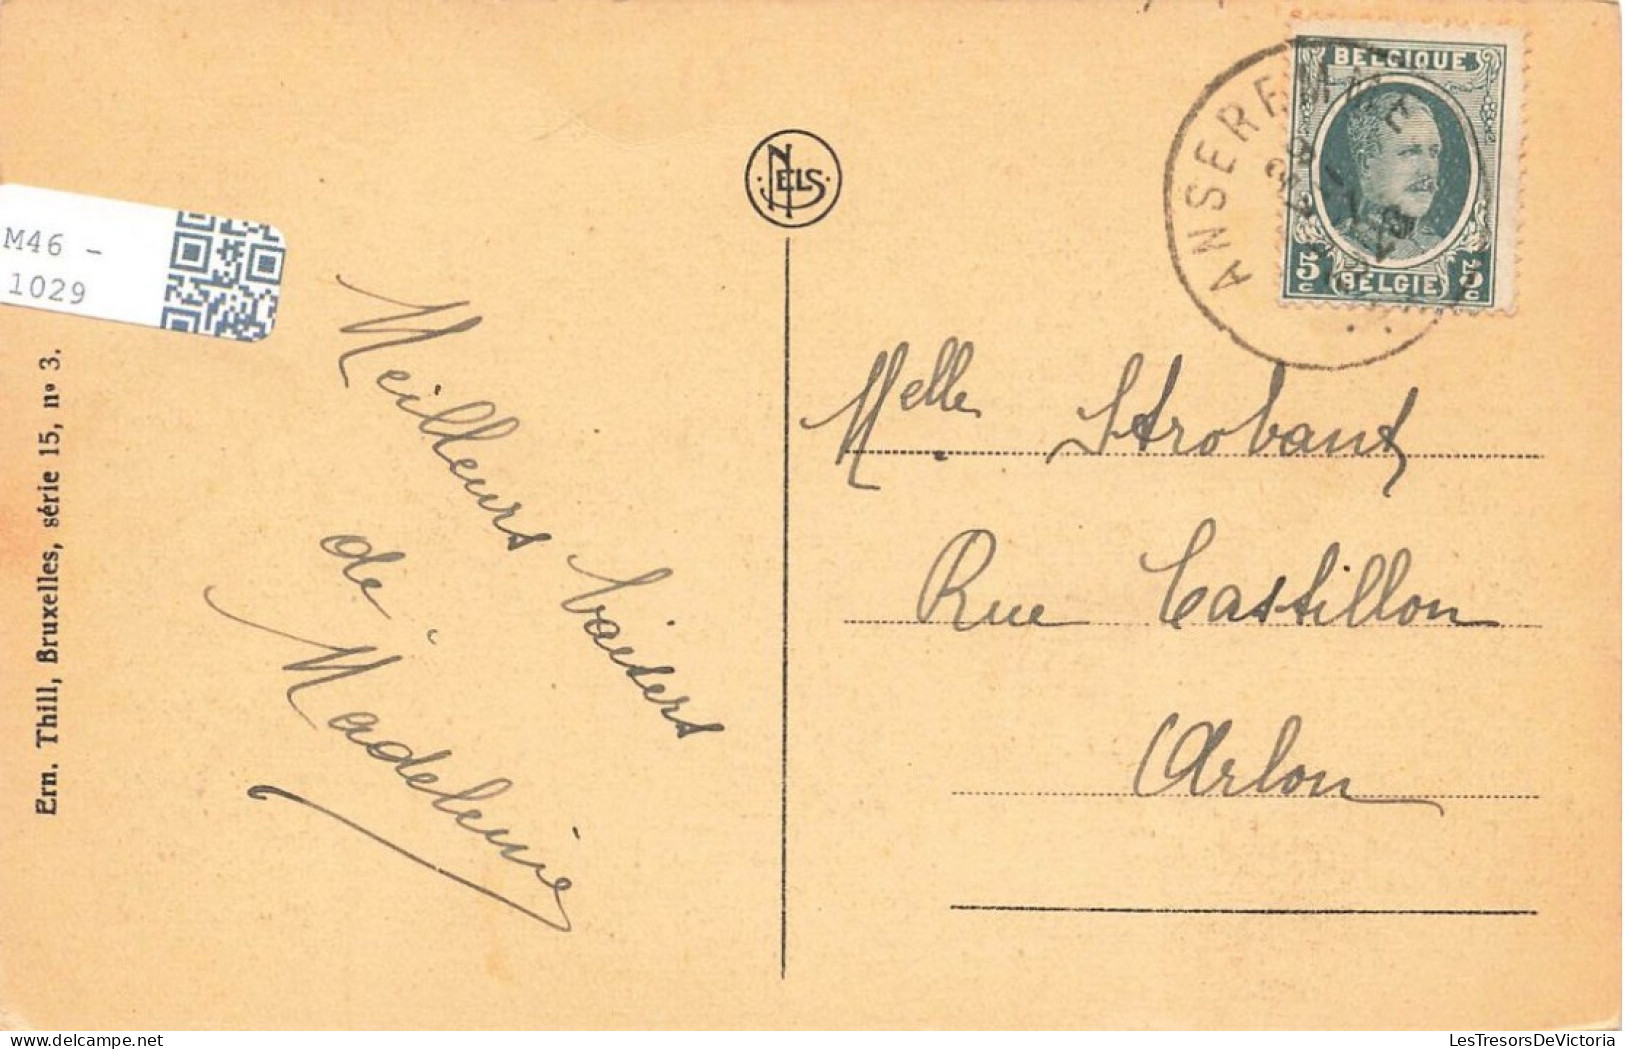 BELGIQUE
ANSEREMME
5 c
5 c
BELGIE
NELS
M46 -
1029
Ern. Thill, Bruxelles, série 15, nº 3.
Meilleurs baisers
de
Madeleine
Melle Strobant
Rue Castillon
Arlon
LesTresorsDeVictoria